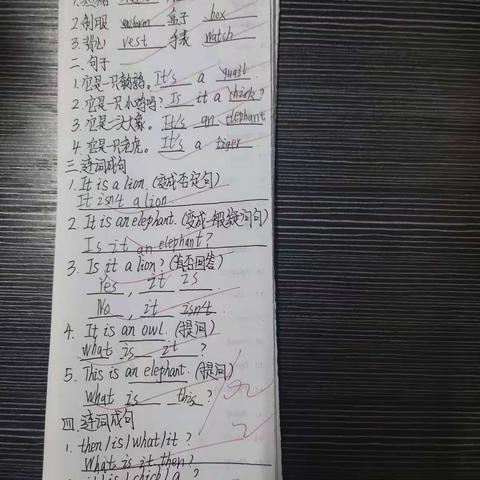 2.制服 uniform 盒子 box
3.背心 vest 手表 watch
二.句子
1.它是一只鹌鹑。It's a quail.
2.它是一只小鸡吗? Is it a chick?
3.它是一头大象。It's an elephant
4.它是一只老虎。It's a tiger
三.连词成句
1. It is a lion. (变成否定句)
It isn't a lion
2. It is an elephant. (变成一般疑问句)
Is it an elephant?
3. Is it a lion? (肯否回答)
Yes, it is
No, it isn't
4. It is an owl. (提问)
Whats is it?
5. This is an elephant. (提问)
What is this?
四.连词成句
1. then/is/what/it?
What is it then?